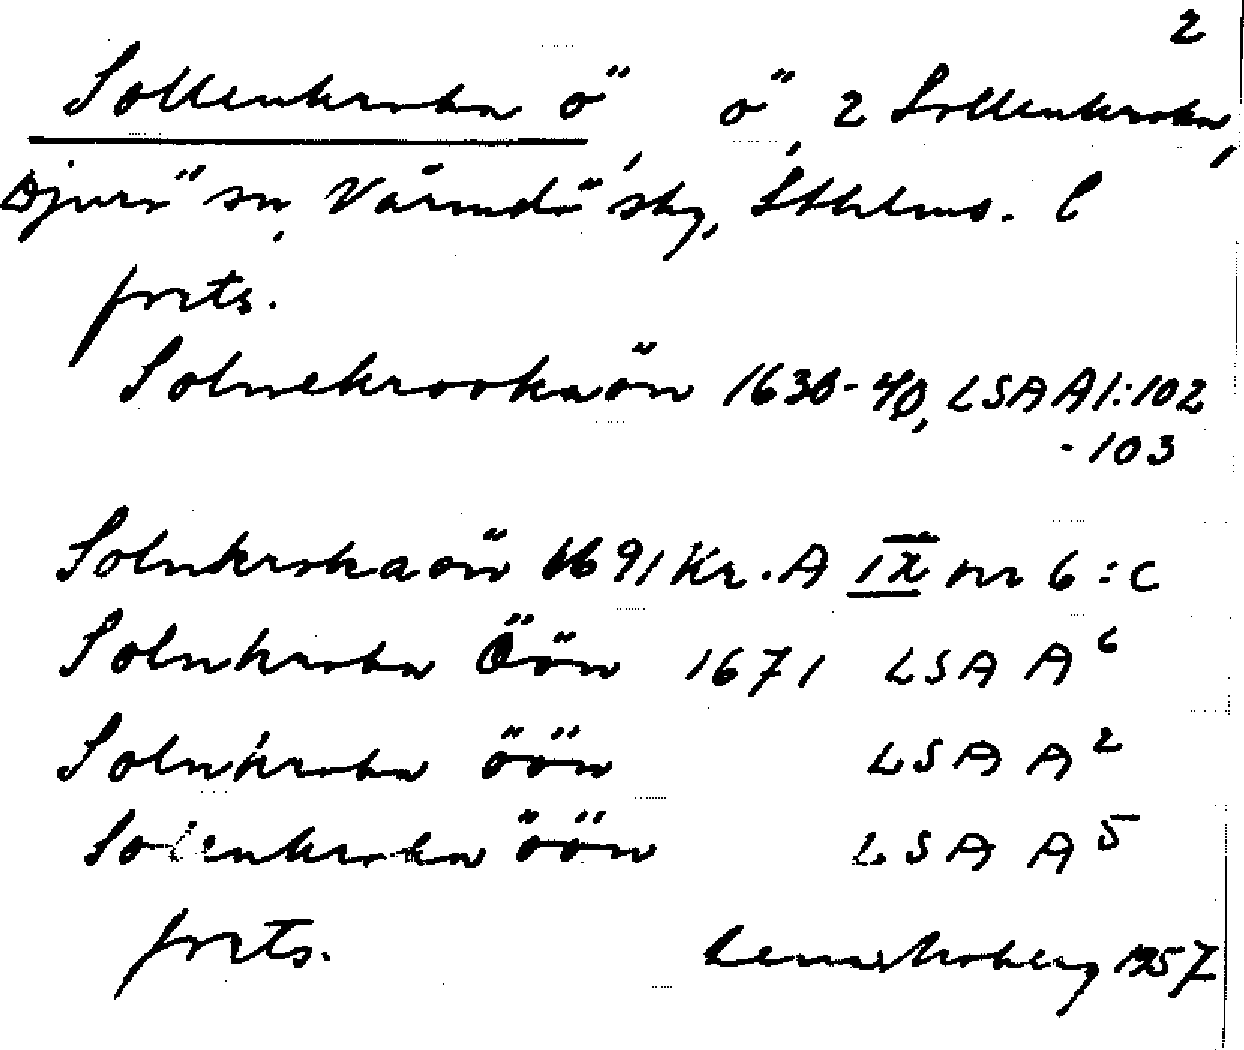 2
Sollenkroka ö ö, 2 Sollenkroka,
Djurö sn, Värmdö skg, Sthlms. l
forts.
Solnekrookaön 1630-40, LSA A1:102
-103
Solnkrokaön 1691 Kr. A IX nr 6:c
Solnkroka Öön 1671 LSA A⁶
Solnkroka öön LSA A²
Solenkroka öön LSA A⁵
forts. 1957